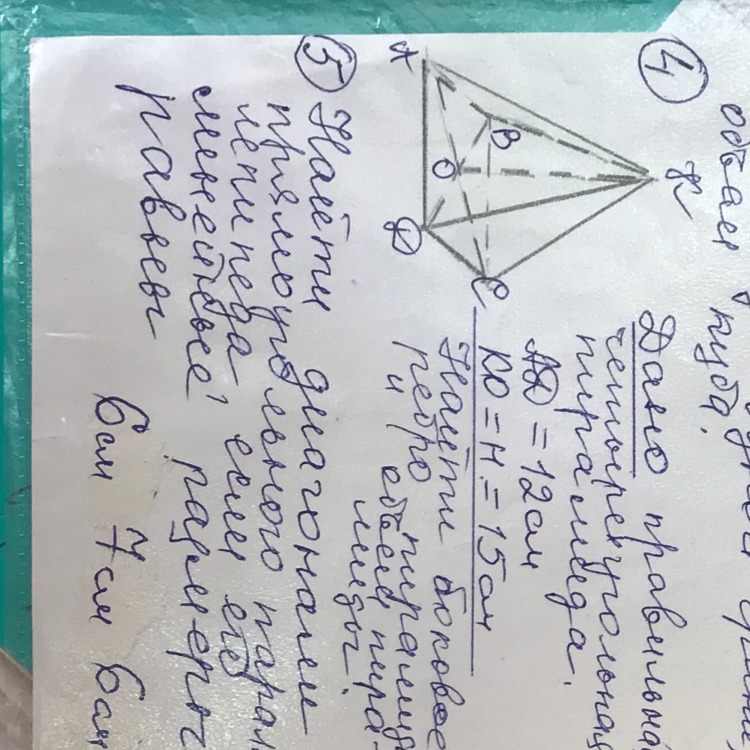 объем куба.
④
Дано правильная
четырехугольная
пирамида.
АД = 12 см
КО = Н = 15 см
Найти боковое
ребро пирамиды
и объем пира-
миды.
К
А
В
О
Д
С
⑤ Найти диагонали
прямоугольного парал
лепипеда если его
смежные размеры
равны
6 см 7 см 6 см